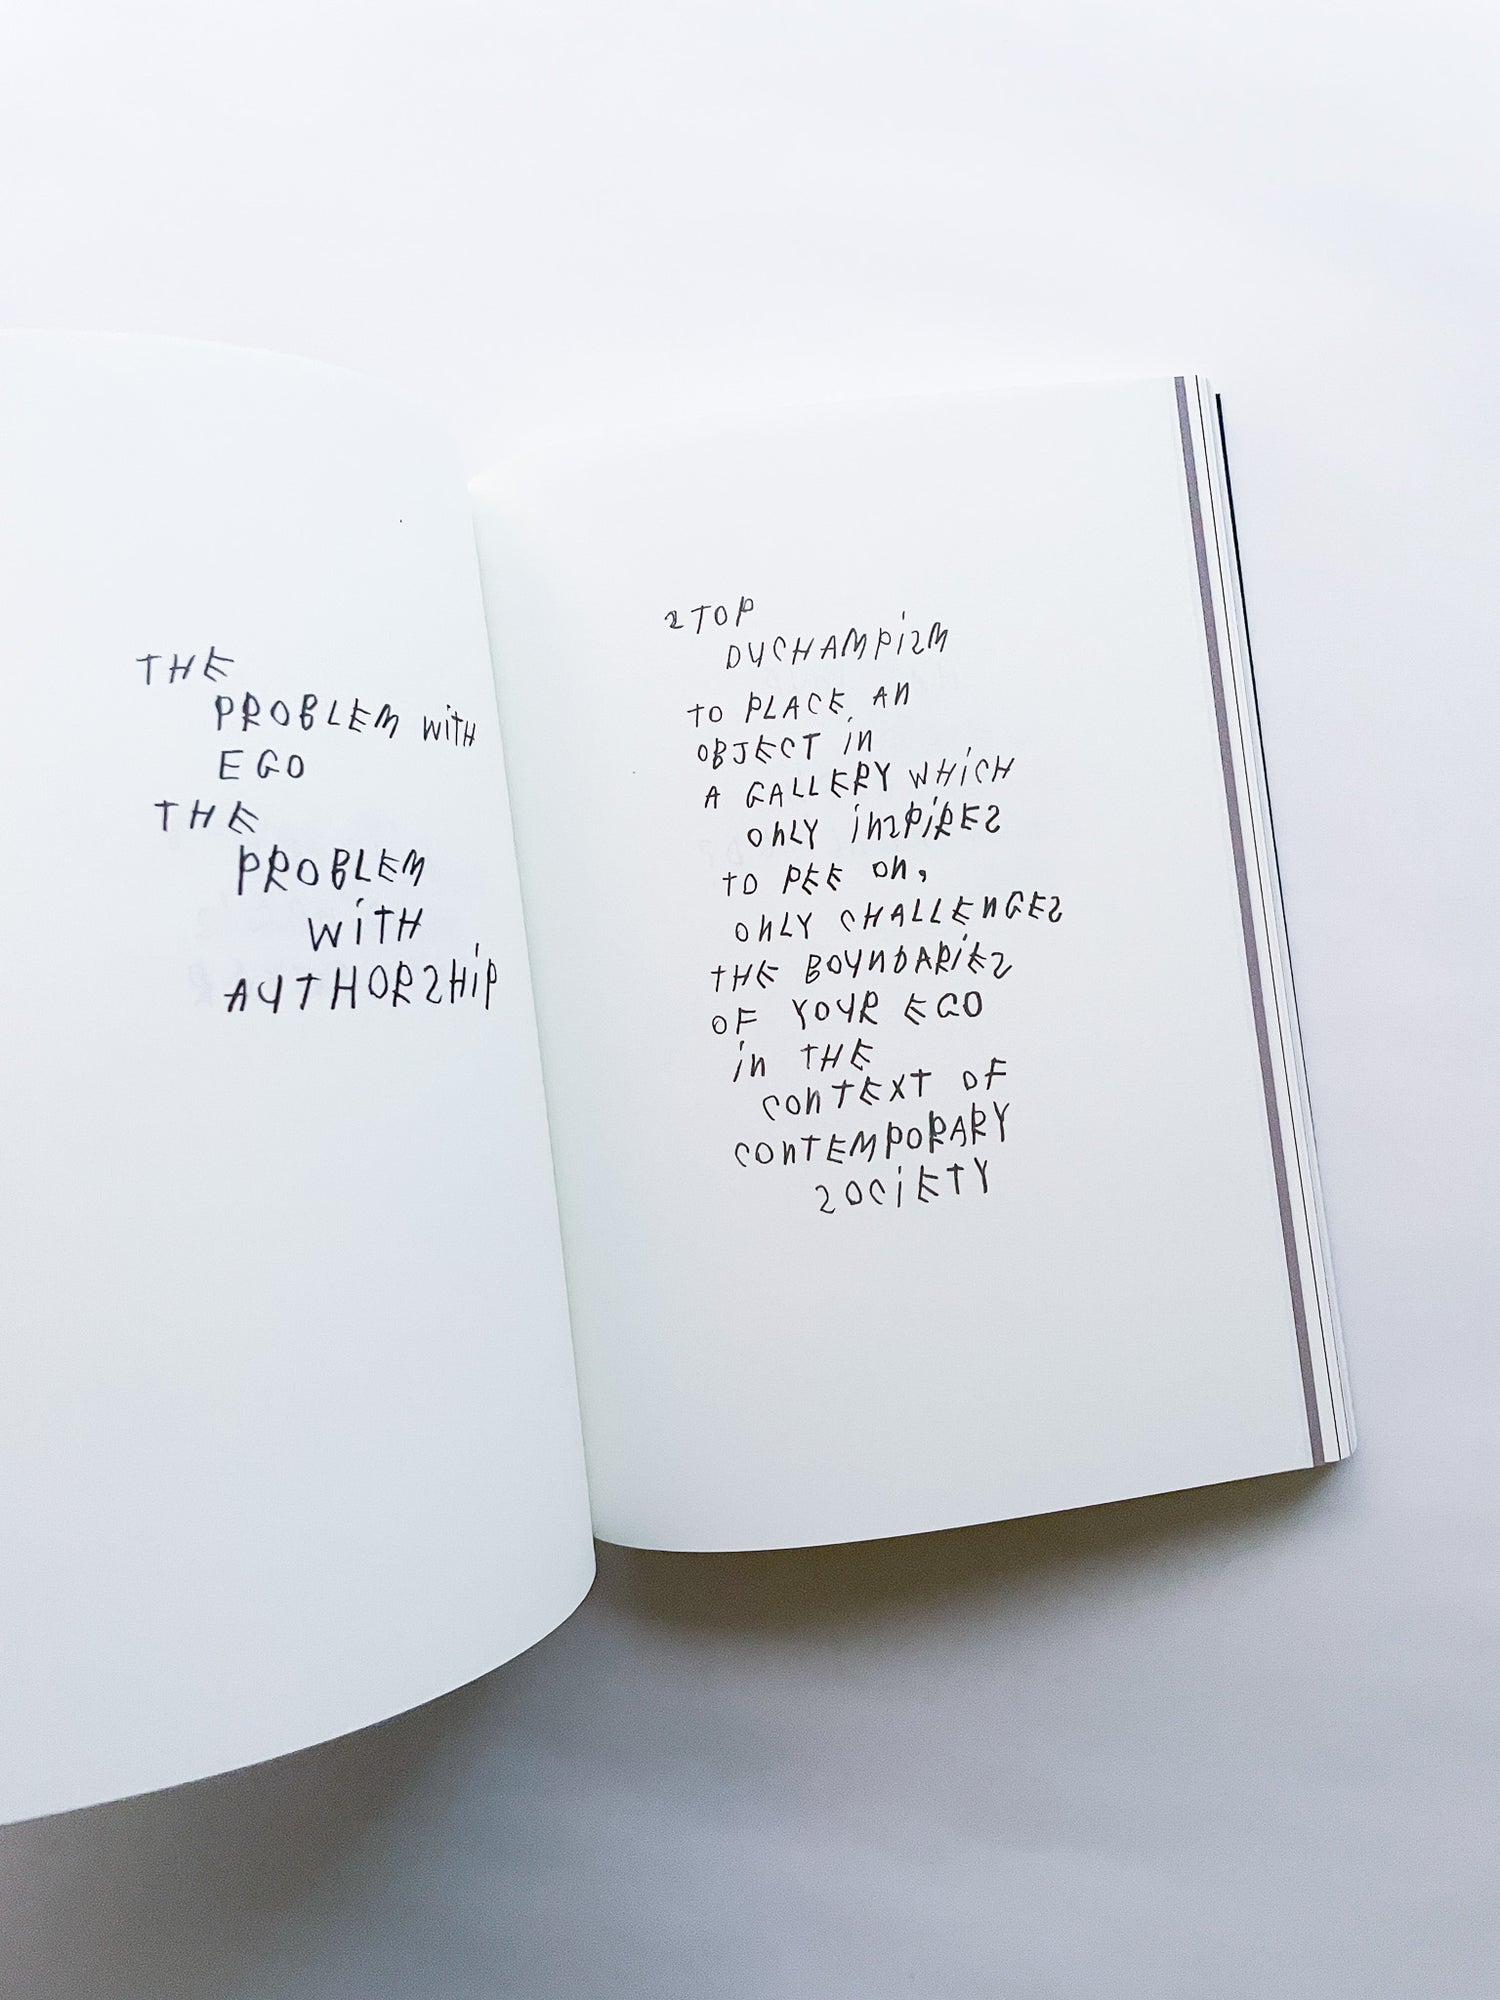 THE
PROBLEM WiTH
EGO
THE
PROBLEM
WiTH
AUTHORSHiP
STOP
DUCHAMPiSM
TO PLACE AN
OBJECT iN
A GALLERY WHiCH
ONLY iNSPiRES
TO PEE ON,
ONLY CHALLENGES
THE BOUNDARiES
OF YOUR EGO
iN THE
CONTEXT OF
CONTEMPORARY
SOCiETY